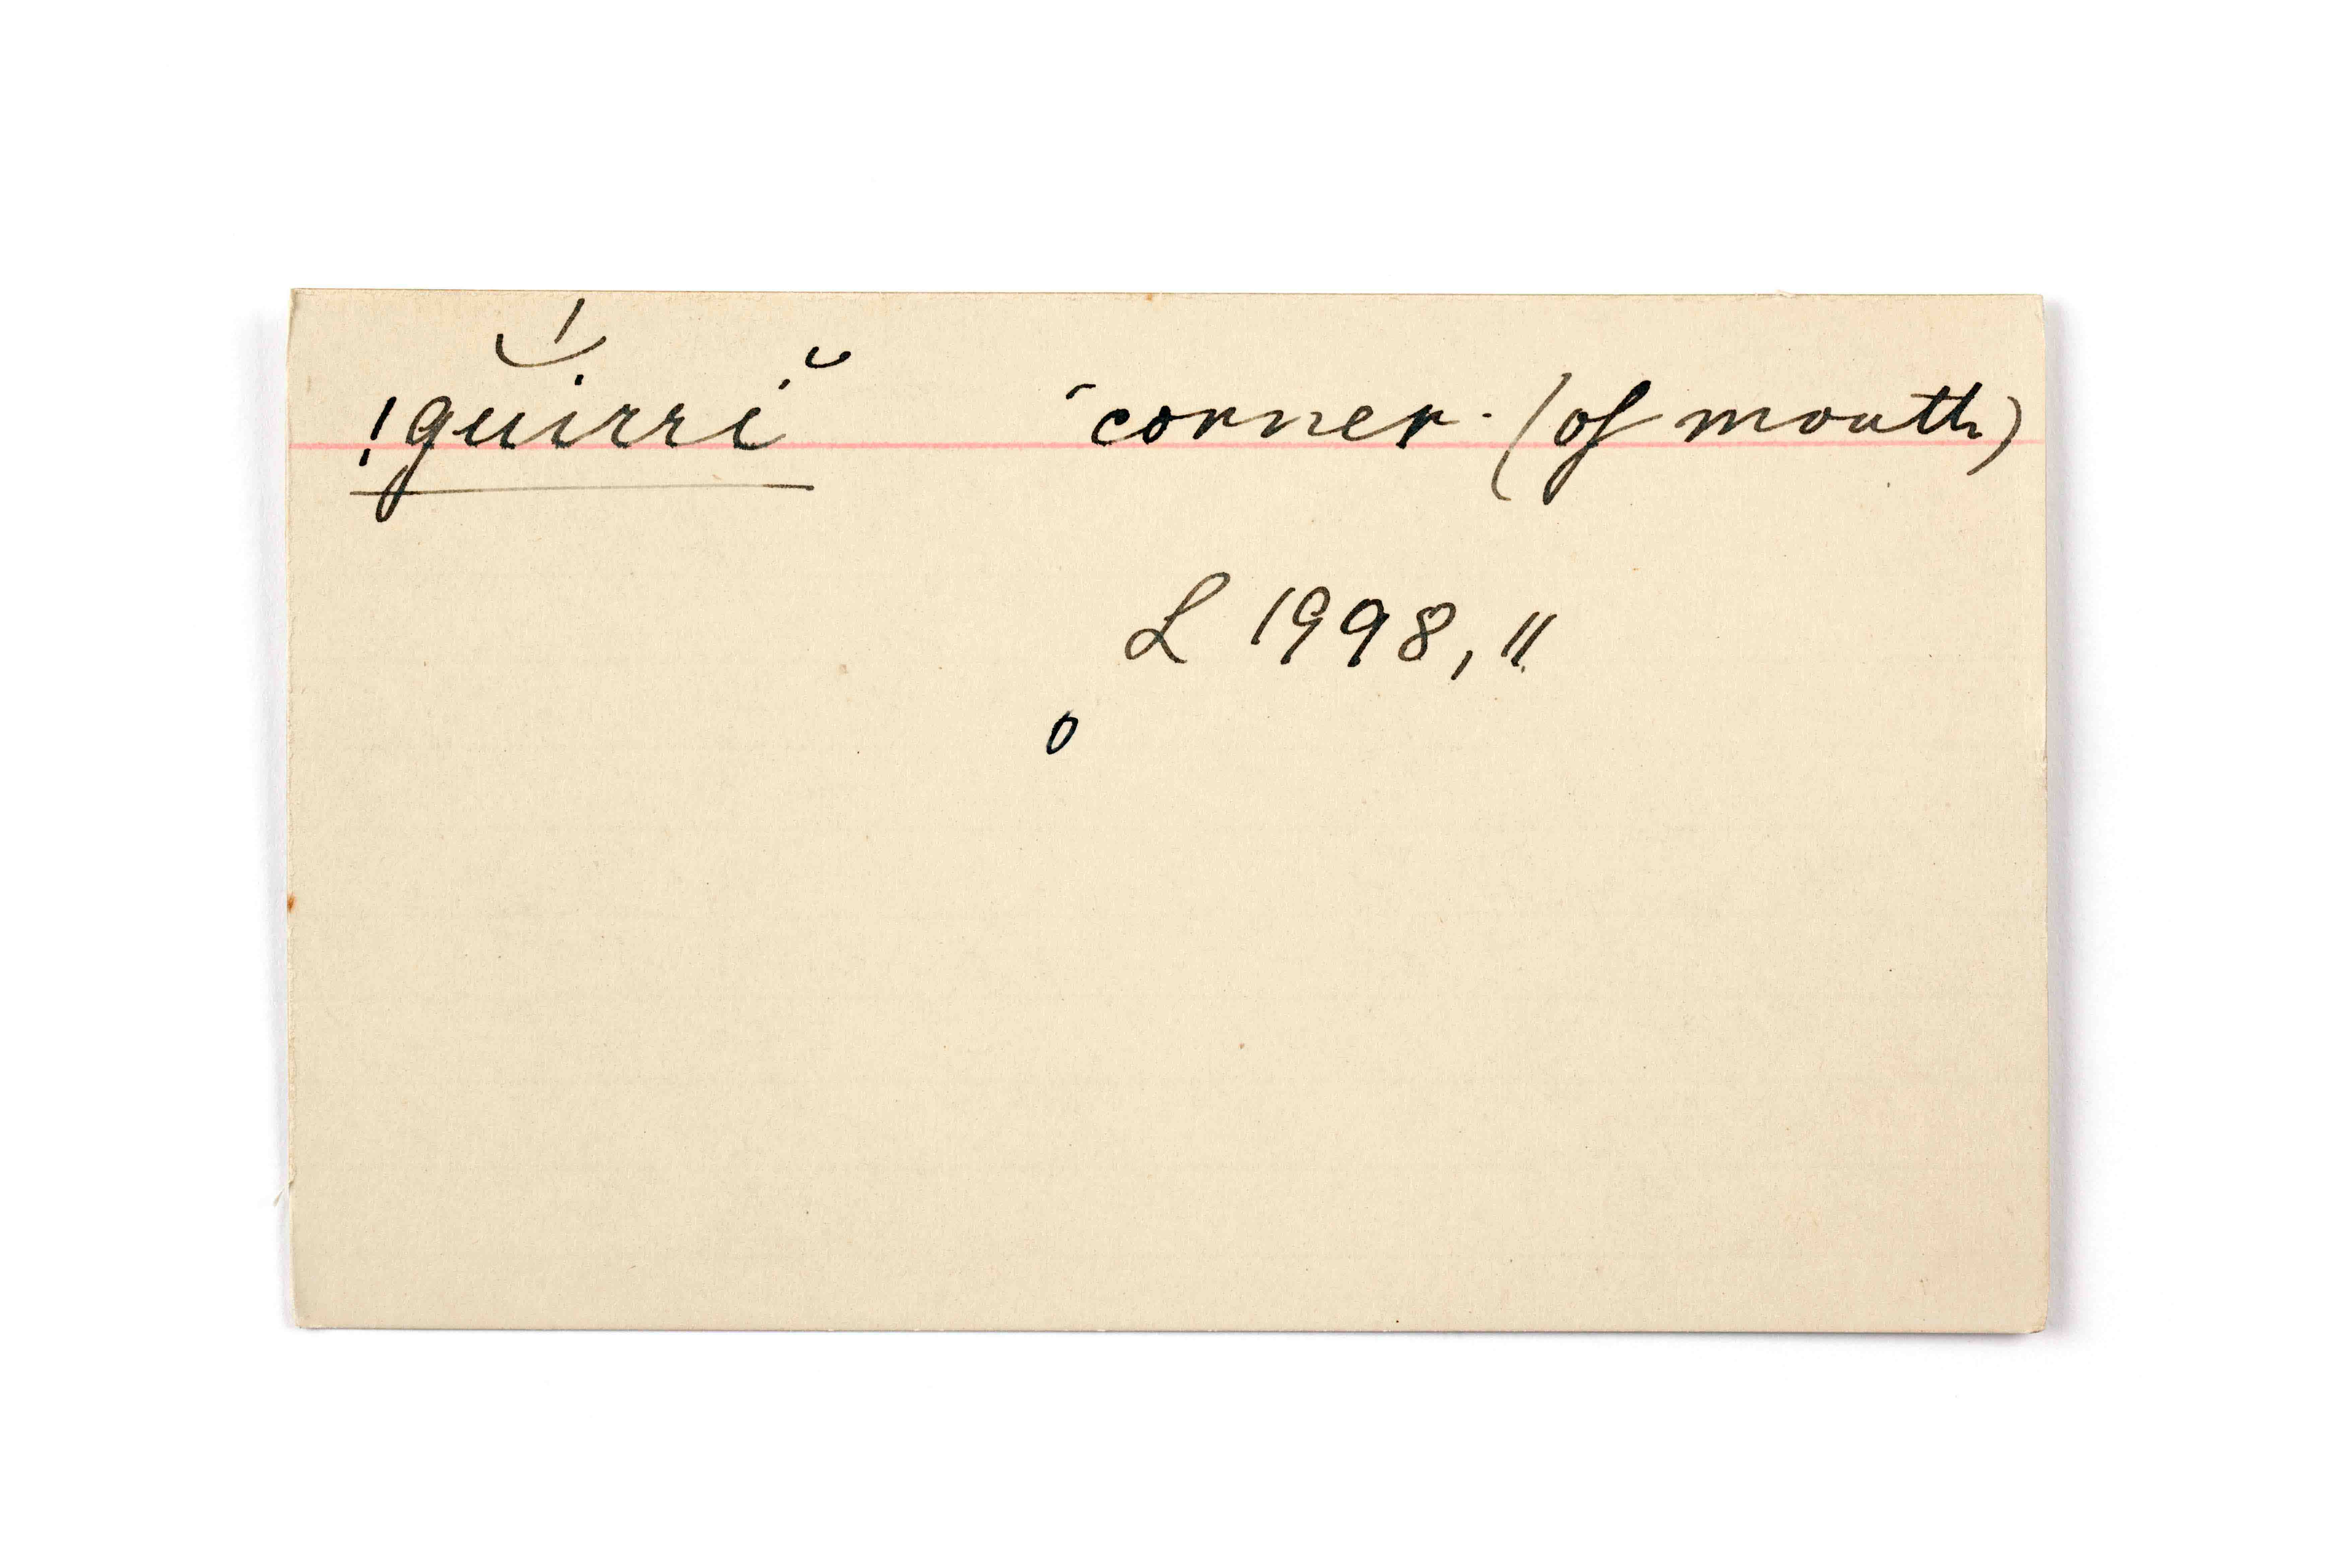 !gŭ̯́irrĭ 'corner. (of mouth)
L 1998, 11.
0